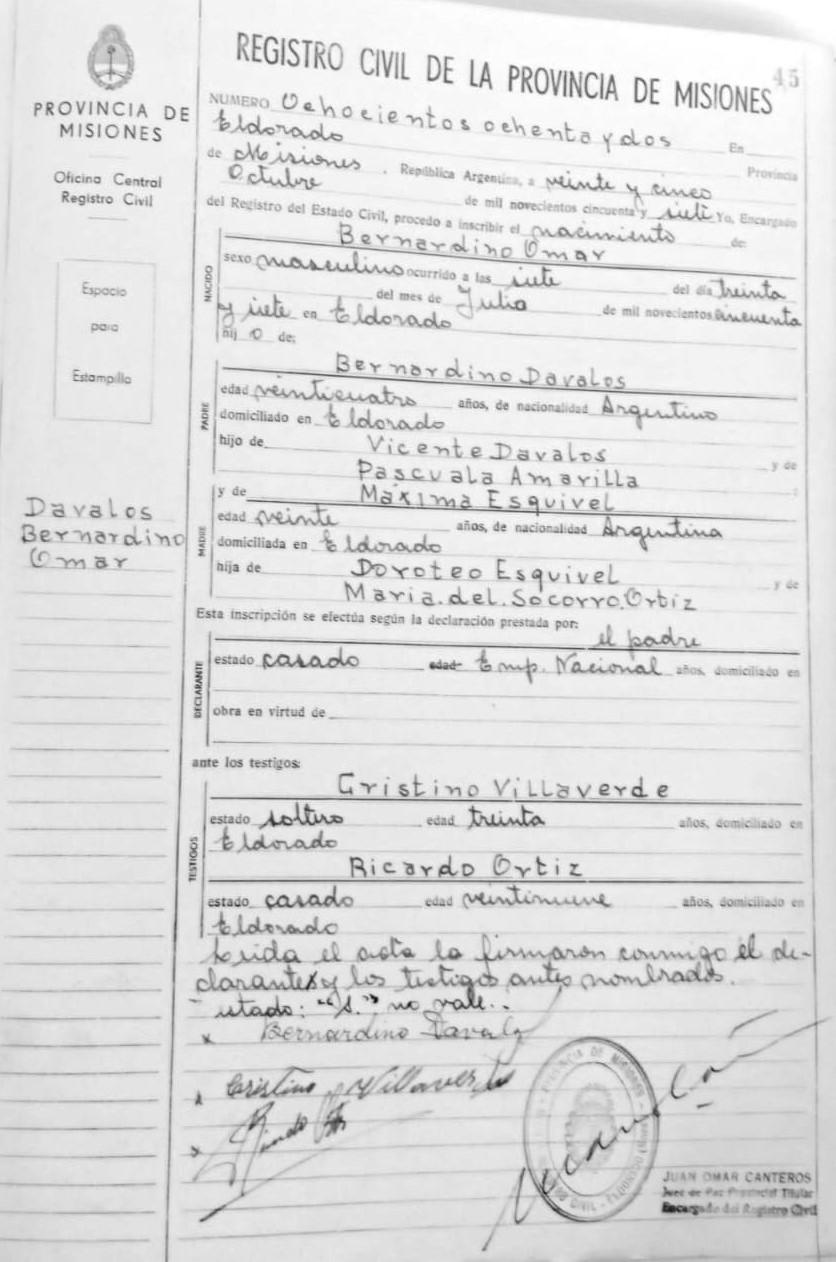 45
REGISTRO CIVIL DE LA PROVINCIA DE MISIONES
PROVINCIA DE
MISIONES
Oficina Central
Registro Civil
Espacio
para
Estampilla
Davalos
Bernardino
Omar
NUMERO Ochocientos ochenta y dos En
Eldorado Provincia
de Misiones, República Argentina, a veinte y cinco
Octubre de mil novecientos cincuenta y siete Yo, Encargado
del Registro del Estado Civil, procedo a inscribir el nacimiento de:
NACIDO
Bernardino Omar
sexo masculino ocurrido a las siete del día treinta
del mes de Julio de mil novecientos cincuenta
y siete en Eldorado
hij o de:
PADRE
Bernardino Davalos
edad veinticuatro años, de nacionalidad Argentino
domiciliado en Eldorado
hijo de Vicente Davalos y de
Pascuala Amarilla
MADRE
y de Máxima Esquivel
edad veinte años, de nacionalidad Argentina
domiciliada en Eldorado
hija de Doroteo Esquivel y de
Maria.del.Socorro.Ortiz
Esta inscripción se efectúa según la declaración prestada por:
el padre
DECLARANTE
estado casado edad Emp. Nacional años, domiciliado en
obra en virtud de
ante los testigos:
TESTIGOS
Cristino Villaverde
estado soltero edad treinta años, domiciliado en
Eldorado
Ricardo Ortiz
estado casado edad veintinueve años, domiciliado en
Eldorado
Leida el acta la firmaron conmigo el de-
clarante y los testigos antes nombrados.
Bernardino Davalo
Cristino Villaverde
PROVINCIA DE MISIONES
JUAN OMAR CANTEROS
Juez de Paz Provincial Titular
Encargado del Registro Civil